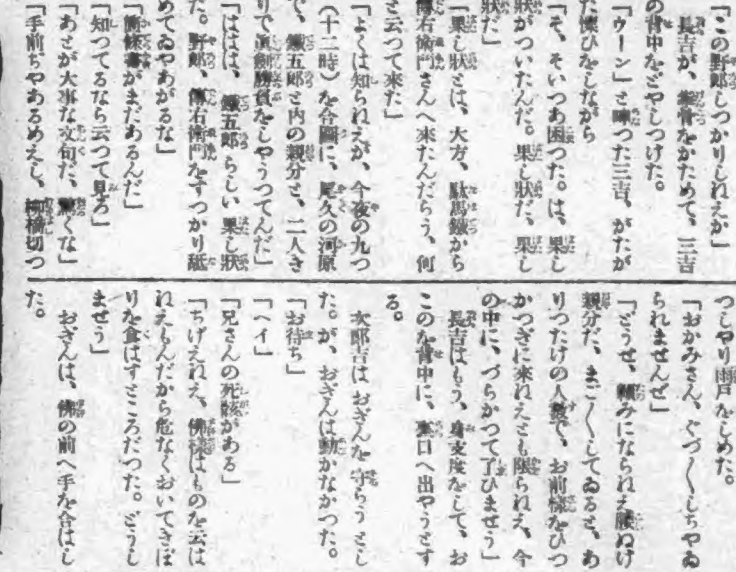 「この野郎しつかりしねえか」
長吉が、拳骨をかためて、三吉
の背中をどやしつけた。
「ウーン」と唸つた三吉、がたが
た慄ひをしながら
「そ、そいつあ困つた。は、果し
狀がついたんだ。果し狀だ、果し
狀だ」
「果し狀とは、大方、駄馬鐵から
傳右衞門さんへ來たんだらう、何
と云つて來た」
「よくは知られえが、今夜の九つ
(十二時)を合圖に、尾久の河原
で、鐵五郎と內の親分と、二人き
りで眞劍勝負をしやうつてんだ」
「ははは、鐵五郎らしい果し狀
だ。野郎、傳右衞門をすつかり舐
めてゐやあがるな」
「衞條書がまだあるんだ」
「知つてるなら云つて見ろ」
「あとが大事な文句だ、驚くな」
「手前ぢやあるめえし、柳橋切つ
つしやり雨戶をしめた。
「おかみさん、ぐづ〳〵しちやゐ
られませんぜ」
「どうせ、賴みになられえ腰ぬけ
親分た、まご〳〵してゐると、あ
りつたけの人數で、お前樣をひつ
かつぎに來れえとも限られえ、今
の中に、づらかつて了ひませう」
長吉はもう、身支度をして、お
このを背中に、裏口へ出やうとす
る。
次郎吉はおぎんを守らうとし
た。が、おぎんは動かなかつた。
「お待ち」
「ヘイ」
「兄さんの死骸がある」
「ちげえれえ、佛樣はものを云は
れえもんだから危なくおいてきぼ
りを食はすところだつた。どうし
ませう」
おぎんは、佛の前へ手を合はし
た。